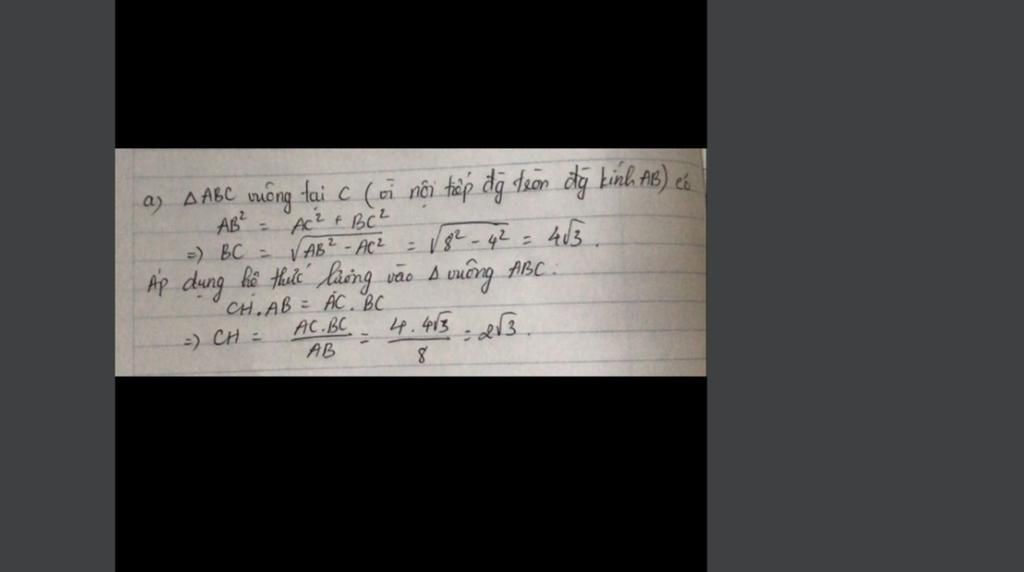 a) Δ ABC vuông tại C (vì nội tiếp đg tròn đg kính AB) có
AB² = AC² + BC²
=) BC = √(AB² - AC²) = √(8² - 4²) = 4√3.
Áp dụng hệ thức lượng vào Δ vuông ABC:
CH.AB = AC.BC
=) CH = AC.BC / AB = 4.4√3 / 8 = 2√3.